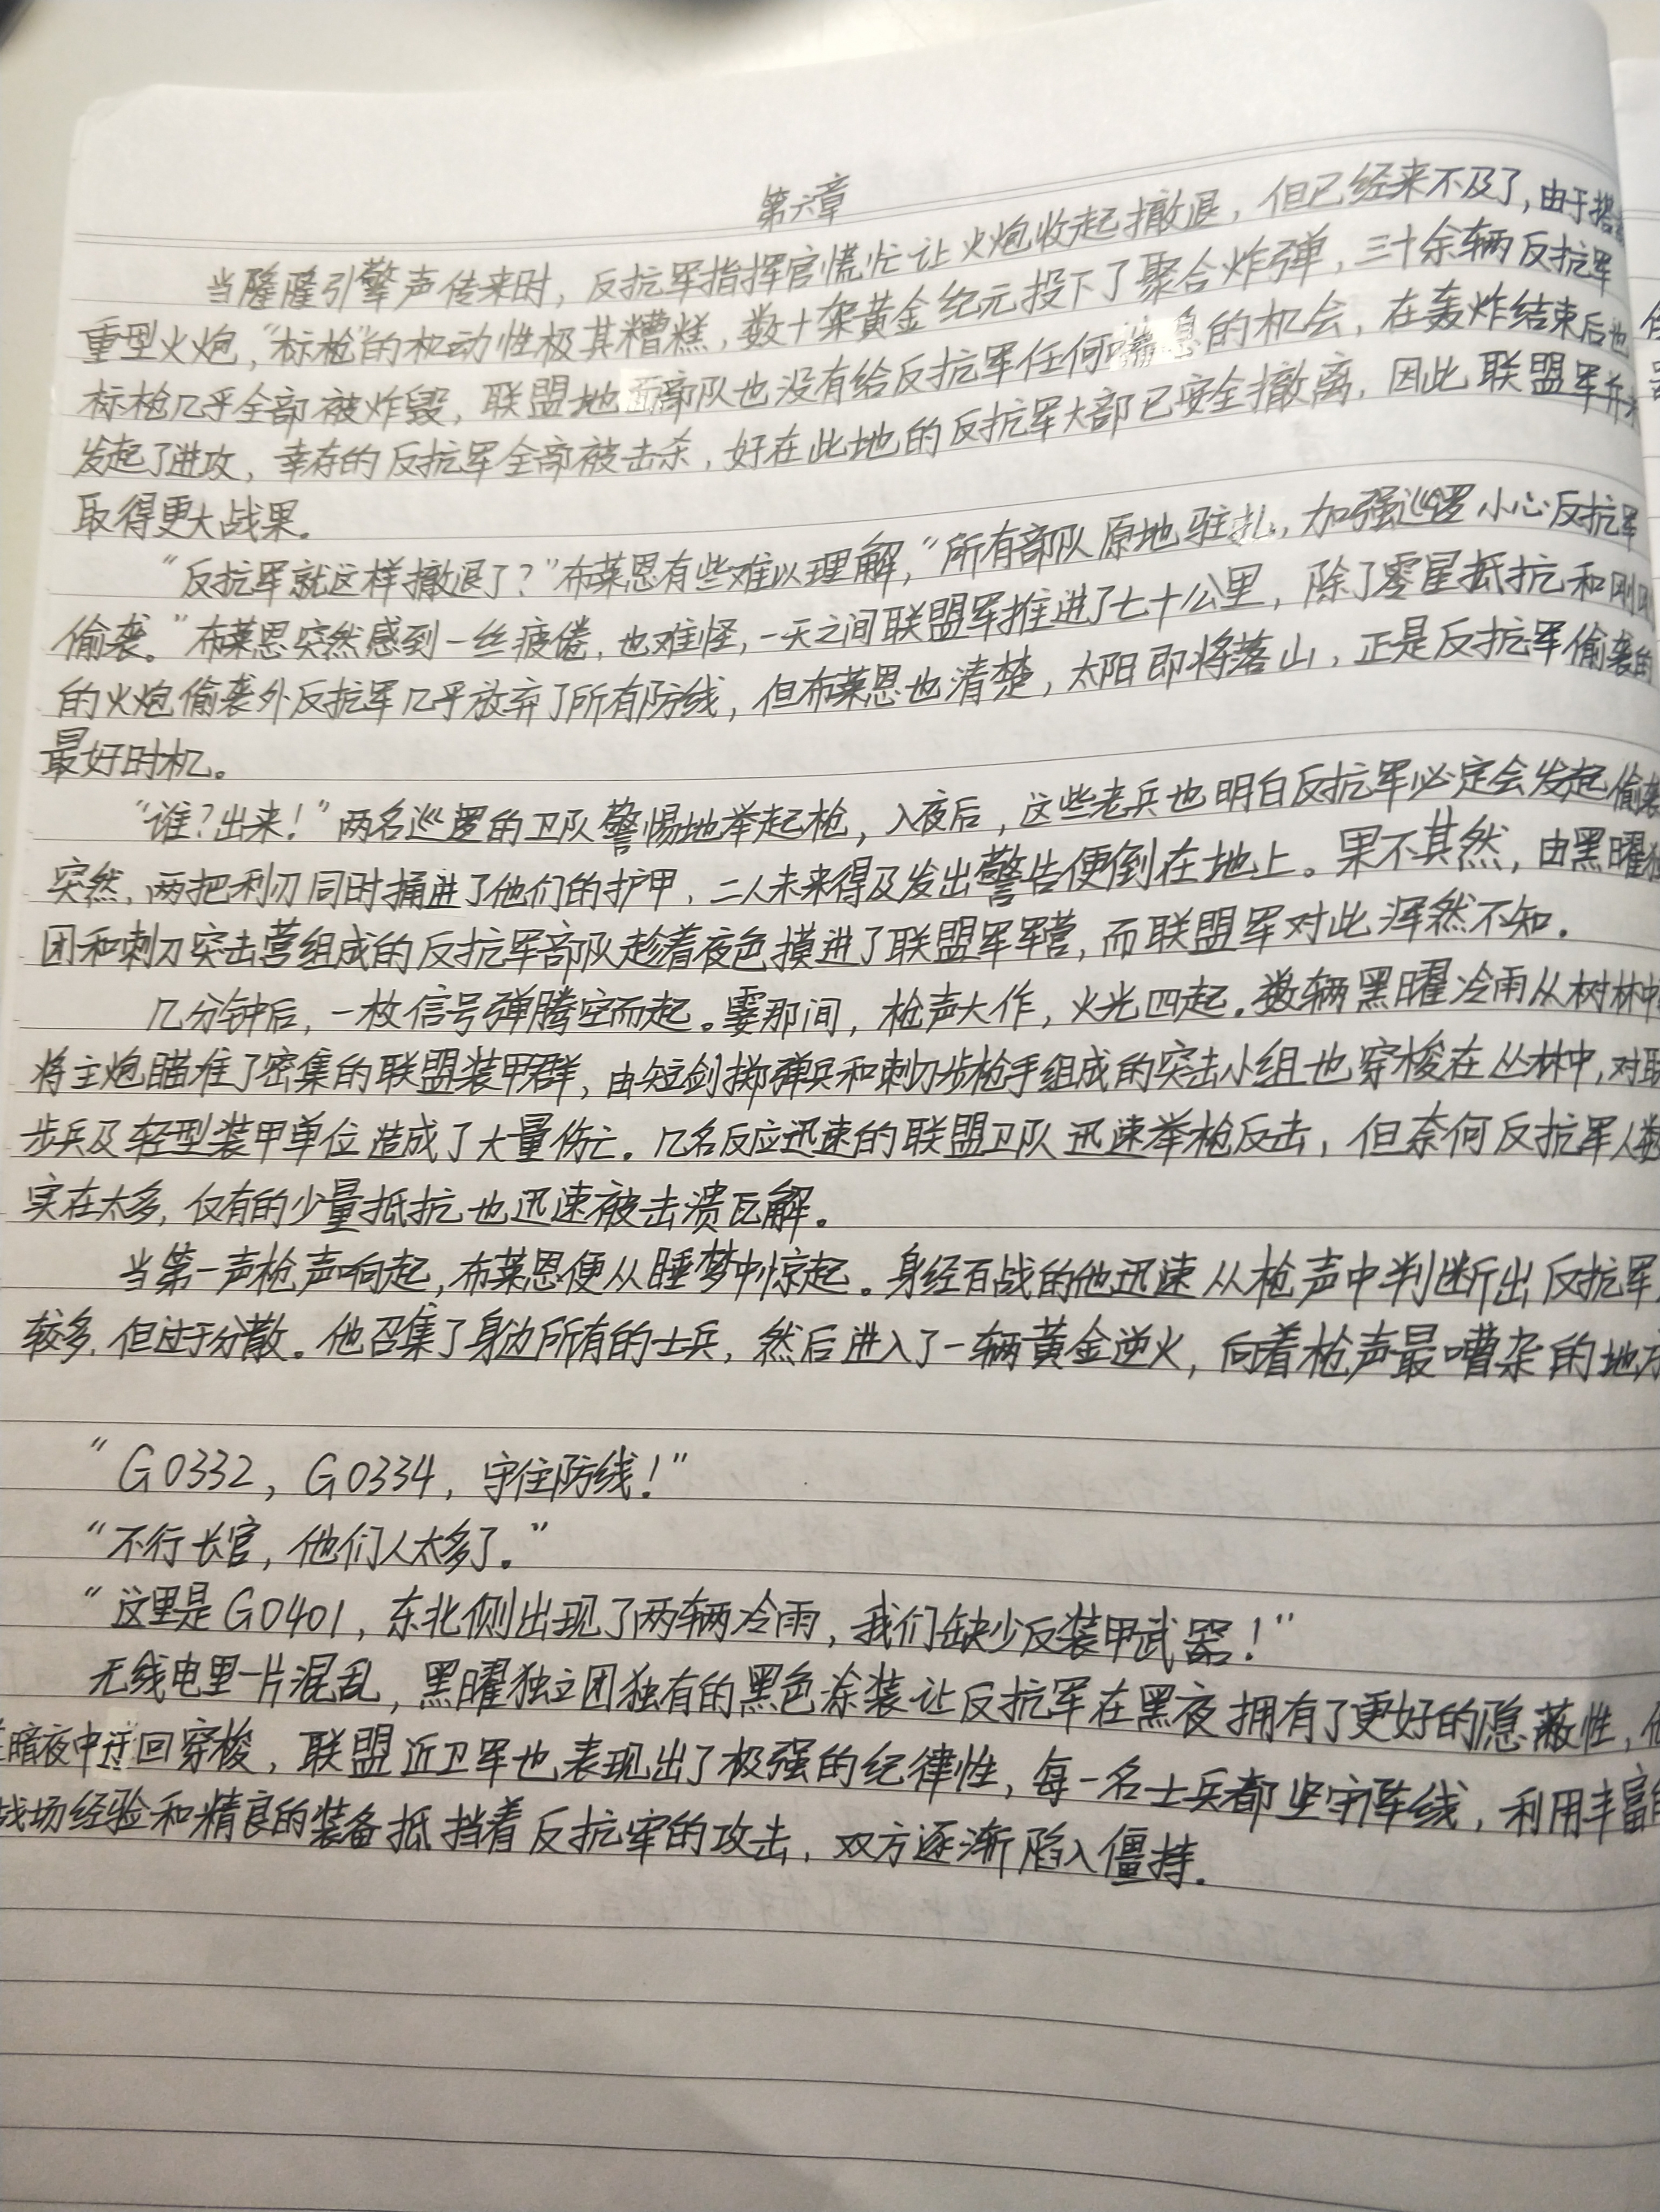 第六章
当隆隆引擎声传来时，反抗军指挥官慌忙让火炮收起撤退，但已经来不及了，由于搭
重型火炮，“标枪”的机动性极其糟糕，数十架黄金纪元投下了聚合炸弹，三十余辆反抗军
标枪几乎全部被炸毁，联盟地面部队也没有给反抗军任何喘息的机会，在轰炸结束后也
发起了进攻，幸存的反抗军全部被击杀，好在此地的反抗军大部已安全撤离，因此联盟军并未
取得更大战果。
“反抗军就这样撤退了？”布莱恩有些难以理解，“所有部队原地驻扎，加强巡逻小心反抗军
偷袭。”布莱恩突然感到一丝疲倦，也难怪，一天之间联盟军推进了七十公里，除了零星抵抗和刚刚
的火炮偷袭外反抗军几乎放弃了所有防线，但布莱恩也清楚，太阳即将落山，正是反抗军偷袭的
最好时机。
“谁？出来！”两名巡逻的卫队警惕地举起枪，入夜后，这些老兵也明白反抗军必定会发起偷袭
突然，两把利刃同时捅进了他们的护甲，二人未来得及发出警告便倒在地上。果不其然，由黑曜独
团和刺刀突击营组成的反抗军部队趁着夜色摸进了联盟军军营，而联盟军对此浑然不知。
几分钟后，一枚信号弹腾空而起。霎那间，枪声大作，火光四起。数辆黑曜冷雨从树林中
将主炮瞄准了密集的联盟装甲群，由短剑掷弹兵和刺刀步枪手组成的突击小组也穿梭在丛林中，对联
步兵及轻型装甲单位造成了大量伤亡。几名反应迅速的联盟卫队迅速举枪反击，但奈何反抗军人数
实在太多，仅有的少量抵抗也迅速被击溃瓦解。
当第一声枪声响起，布莱恩便从睡梦中惊起。身经百战的他迅速从枪声中判断出反抗军
较多，但过于分散。他召集了身边所有的士兵，然后进入了一辆黄金逆火，向着枪声最嘈杂的地方
“G0332，G0334，守住防线！”
“不行长官，他们人太多了。”
“这里是G0401，东北侧出现了两辆冷雨，我们缺少反装甲武器！”
无线电里一片混乱，黑曜独立团独有的黑色涂装让反抗军在黑夜拥有了更好的隐蔽性，他
暗夜中迂回穿梭，联盟近卫军也表现出了极强的纪律性，每一名士兵都坚守阵线，利用丰富的
战场经验和精良的装备抵挡着反抗军的攻击，双方逐渐陷入僵持。